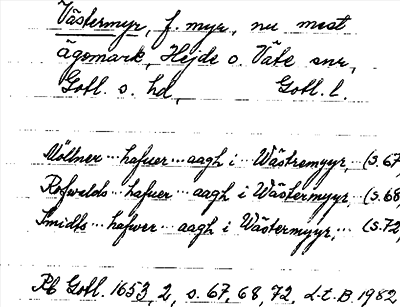 Västermyr, f. myr, nu mest
ägomark, Hejde o. Väte snr,
Gotl. s. hd, Gotl. l.
Möllner ... hafuer ... aagh i ... Wästremyyr, (s. 67,
Rofwelds ... hafuer ... aagh i Wästermyyr, (s. 68,
Smidts ... hafwer ... aagh i Wästermyyr, ... (s. 72,
Rb Gotl. 1653, 2, s. 67, 68, 72, L.t.B. 1982